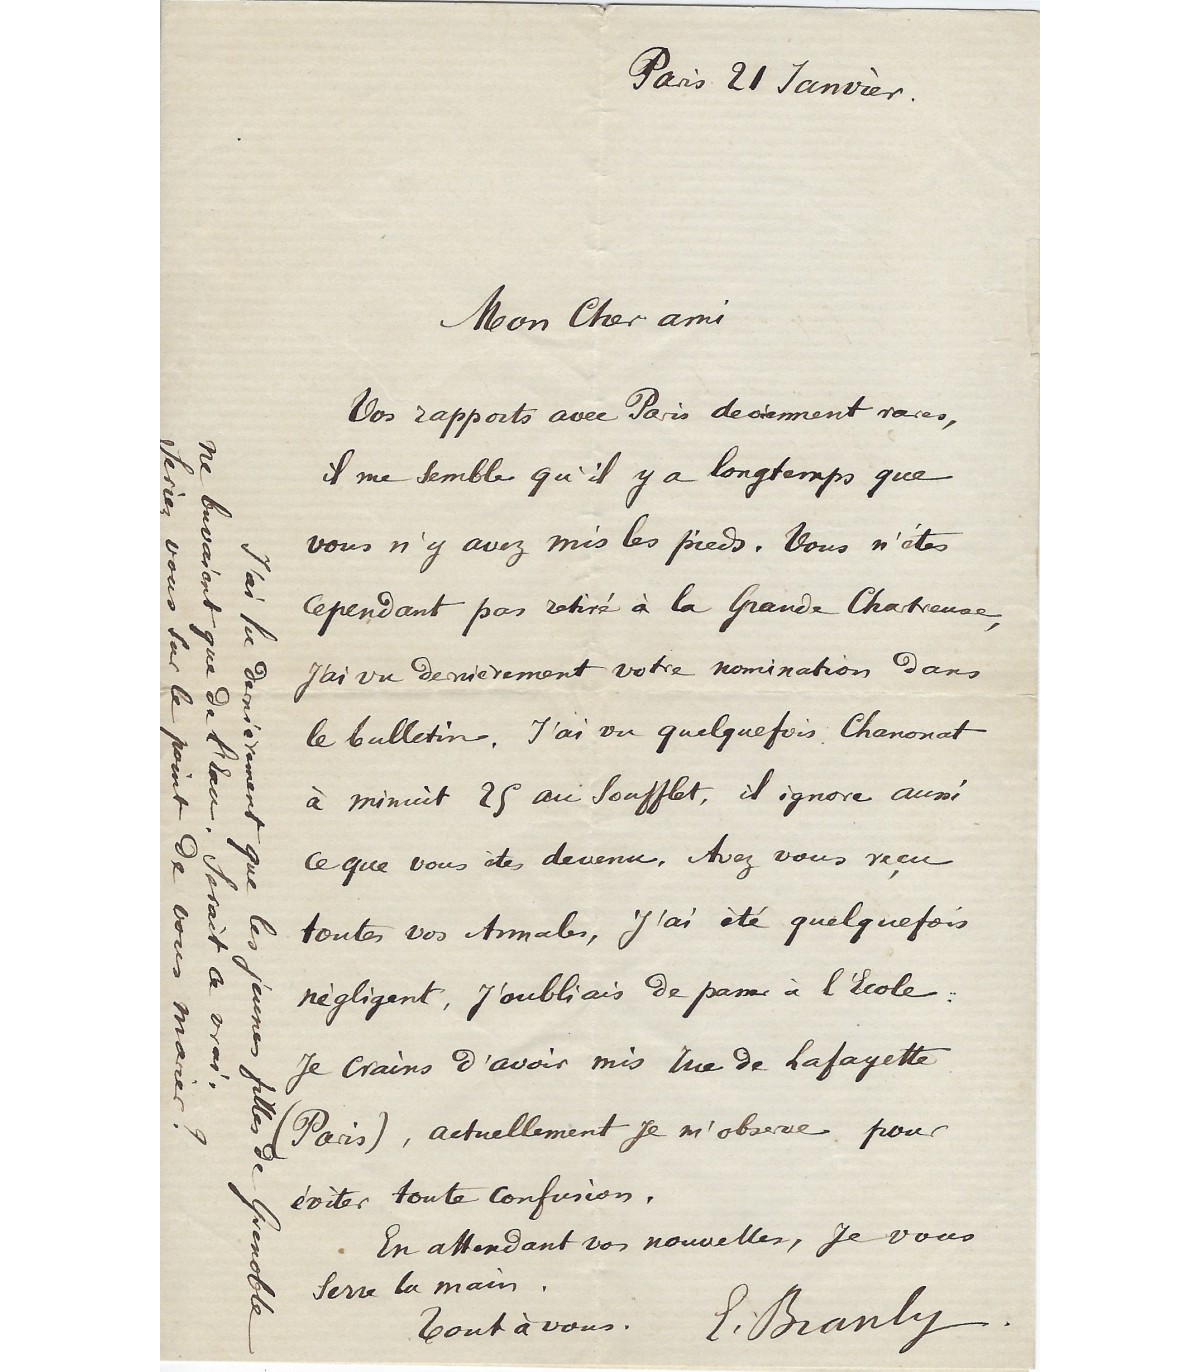 Paris 21 Janvier.
Mon Cher ami
Vos rapports avec Paris deviennent rares,
il me semble qu'il y a longtemps que
vous n'y avez mis les pieds. Vous n'êtes
cependant pas retiré à la Grande Chartreuse,
J'ai vu dernièrement votre nomination dans
le bulletin. J'ai vu quelquefois Chanonat
à minuit 25 au Soufflet, il ignore aussi
ce que vous êtes devenu. Avez vous reçu
toutes vos Annales, J'ai été quelquefois
négligent, J'oubliais de passer à l'Ecole :
Je crains d'avoir mis Rue de Lafayette
(Paris), actuellement je m'observe pour
éviter toute confusion.
En attendant vos nouvelles, Je vous
serre la main.
Tout à vous. E. Branly.
J'ai lu dernièrement que les jeunes filles de Grenoble
ne buvaient que de l'Eau. Serait ce vrai. ?
Seriez vous sur le point de vous marier ?